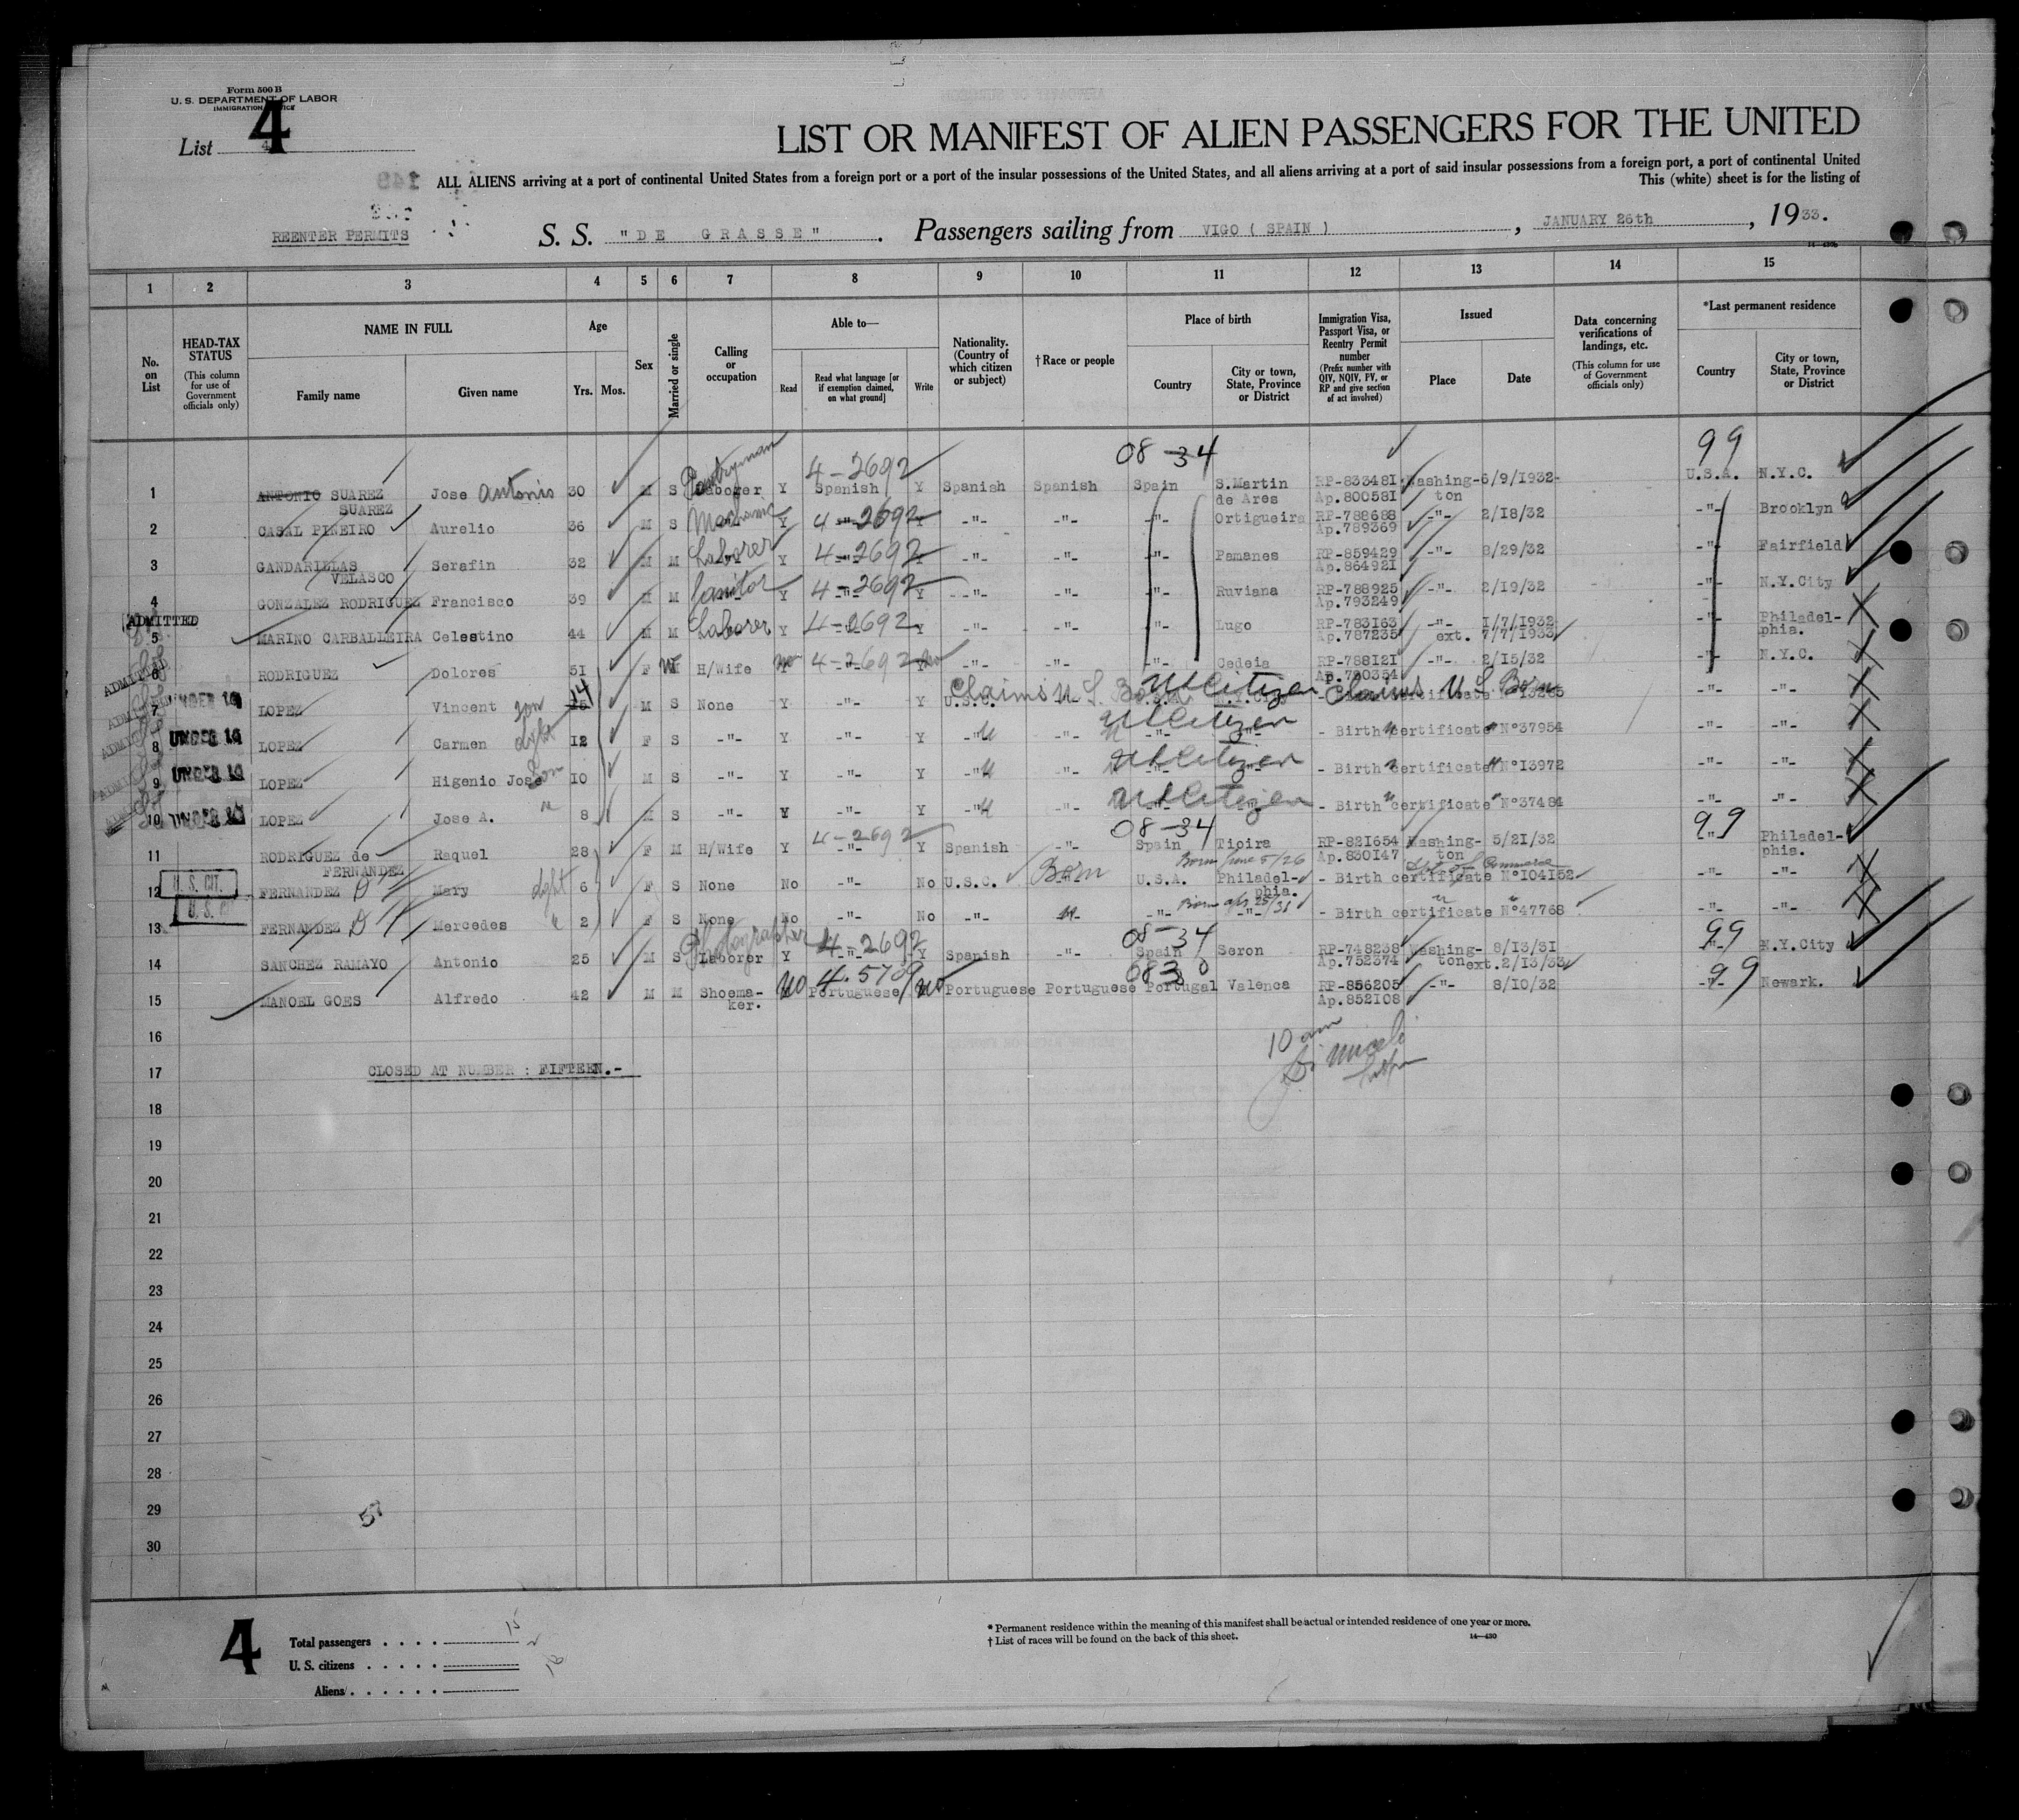 Form 500 B
U. S. DEPARTMENT OF LABOR
IMMIGRATION SERVICE
List 4
4
LIST OR MANIFEST OF ALIEN PASSENGERS FOR THE UNITED
ALL ALIENS arriving at a port of continental United States from a foreign port or a port of the insular possessions of the United States, and all aliens arriving at a port of said insular possessions from a foreign port, a port of continental United
This (white) sheet is for the listing of
REENTER PERMITS S. S. "DE GRASSE". Passengers sailing from VIGO ( SPAIN ), JANUARY 26th, 1933.
1 2 3 4 5 6 7 8 9 10 11 12 13 14 15
No. on List
HEAD-TAX STATUS (This column for use of Government officials only)
NAME IN FULL
Family name Given name
Age
Yrs. Mos.
Sex
Married or single
Calling or occupation
Able to—
Read Read what language [or if exemption claimed, on what ground] Write
Nationality. (Country of which citizen or subject)
† Race or people
Place of birth
Country City or town, State, Province or District
Immigration Visa, Passport Visa, or Reentry Permit number (Prefix number with QIV, NQIV, FV, or RP and give section of act involved)
Issued
Place Date
Data concerning verifications of landings, etc. (This column for use of Government officials only)
*Last permanent residence
Country City or town, State, Province or District
Pantryman 4-2692 08-34 99
1 ANTONIO SUAREZ SUAREZ Jose Antonio 30 M S Laborer Y Spanish Y Spanish Spanish Spain S.Martin de Ares RP-833481 Ap.800581 Washington 6/9/1932 U.S.A. N.Y.C.
2 CASAL PINEIRO Aurelio 36 M S Y 4-2692 Y -"- -"- -"- Ortigueira RP-788688 Ap.789369 -"- 2/18/32 -"- Brooklyn
3 GANDARILLAS VELASCO Serafin 32 M M Laborer Y 4-2692 Y -"- -"- -"- Pamanes RP-859429 Ap.864921 -"- 8/29/32 -"- Fairfield
4 GONZALEZ RODRIGUEZ Francisco 39 M M Janitor Y 4-2692 Y -"- -"- -"- Ruviana RP-788925 Ap.793249 -"- 2/19/32 -"- N.Y.City
ADMITTED
5 MARINO CARBALLEIRA Celestino 44 M M Laborer Y 4-2692 Y -"- -"- -"- Lugo RP-783163 Ap.787235 -"- ext. 1/7/1932 7/7/1933 -"- Philadelphia.
ADMITTED
6 RODRIGUEZ Dolores 51 F M H/Wife 4-2692 -"- -"- -"- Cedeia RP-788121 Ap.790354 -"- 2/15/32 -"- N.Y.C.
7 UNDER 16 LOPEZ Vincent son 14 M S None Y -"- Y U.S.C. Claims U S Born US Citizen Claims U S Born -"- -"-
8 UNDER 16 LOPEZ Carmen dght 12 F S -"- Y -"- Y -"- -"- US Citizen - Birth certificate N°37954 -"- -"-
9 UNDER 16 LOPEZ Higenio Jose son 10 M S -"- Y -"- Y -"- -"- US Citizen - Birth certificate N°13972 -"- -"-
10 UNDER 16 LOPEZ Jose A. " 8 M S -"- Y -"- Y -"- -"- US Citizen - Birth certificate N°37484 -"- -"-
4-2692 08-34 99
11 RODRIGUEZ de FERNANDEZ Raquel 28 F M H/Wife Y -"- Y Spanish -"- Spain Tioira RP-821654 Ap.830147 Washington 5/21/32 -"- Philadelphia.
Born June 5/26
12 U.S. CIT. FERNANDEZ Mary dght 6 F S None No -"- No U.S.C. Born U.S.A. Philadelphia. - Birth certificate N°104152 -"- -"-
Born Apr 25/31
13 U.S. C FERNANDEZ Mercedes " 2 F S None No -"- No -"- -"- -"- - Birth certificate N°47768 -"- -"-
Photographer 4-2692 08-34 99
14 SANCHEZ RAMAYO Antonio 25 M S Laborer Y -"- Y Spanish -"- Spain Seron RP-748238 Ap.752374 Washington ext. 8/13/31 2/13/33 -"- N.Y.City
15 MANOEL GOES Alfredo 42 M M Shoemaker. No Portuguese No Portuguese Portuguese Portugal Valenca RP-856205 Ap.852108 -"- 8/10/32 99 Newark.
16
10 am
17 CLOSED AT NUMBER : FIFTEEN.-
18
19
20
21
22
23
24
25
26
27
28
29
57
30
4
Total passengers 15
U. S. citizens
Aliens
* Permanent residence within the meaning of this manifest shall be actual or intended residence of one year or more.
† List of races will be found on the back of this sheet.
14—430